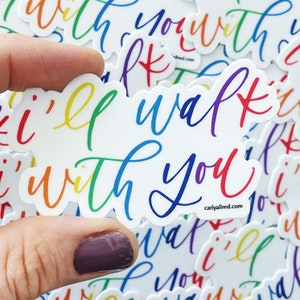 i'll walk
with you
carlyallred.com